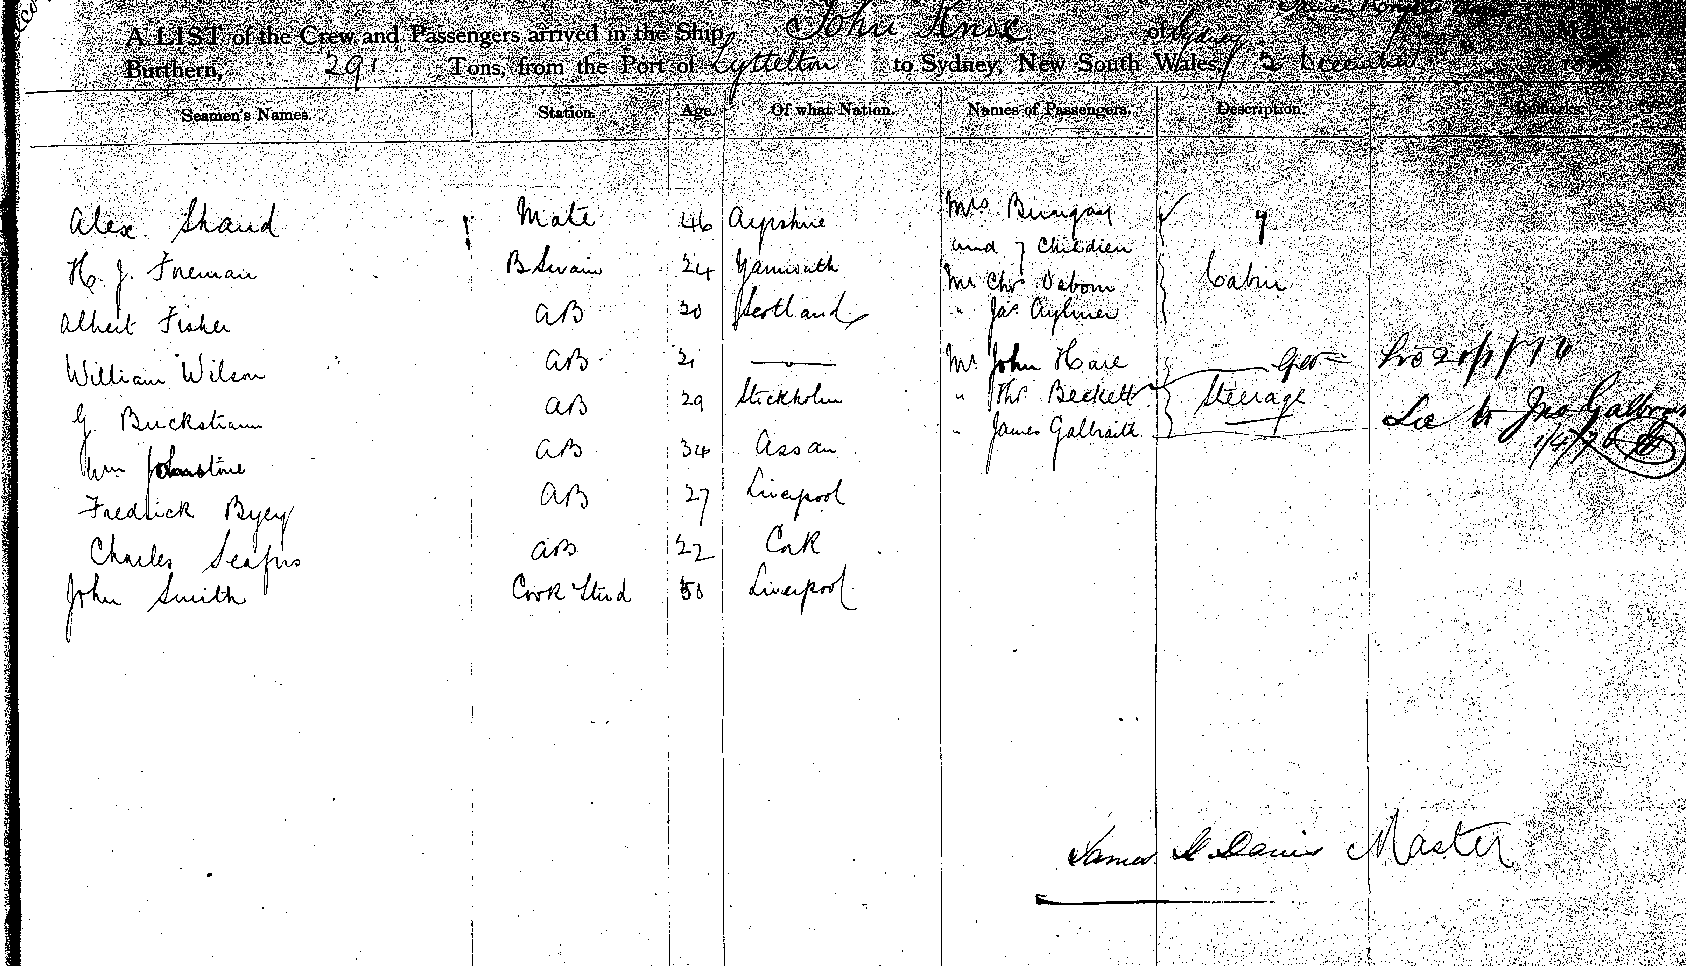 A LIST of the Crew and Passengers arrived in the Ship John Knox of Sydney
Burthern, 291 Tons, from the Port of Lyttelton to Sydney, New South Wales, 2 December
Seamen's Names. Station. Age. Of what Nation. Names of Passengers. Description. Remarks
Alex. Shand Mate 46 Ayrshire Mrs Bungay
and 7 Children
H. J. Freeman BSwain 24 Yarmouth Mr Chrs Osborn Cabin
Albert Fisher AB 20 Scotland " Jas Aylmer
William Wilson AB 21 — Mr John Hare
G. Buckstram AB 29 Stockholm " Thos Beckett Steerage
" James Galbraith
Wm Johnstone AB 34 Assan
Fredrick Byey AB 27 Liverpool
Charles Seafrs AB 22 Cork
John Smith Cook Stwd 50 Liverpool
James Davis Master